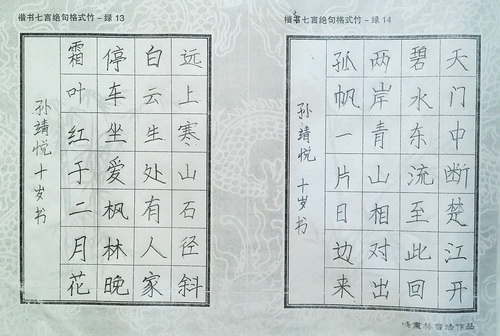 楷书七言绝句格式竹－绿 13
远上寒山石径斜
白云生处有人家
停车坐爱枫林晚
霜叶红于二月花
孙靖悦 十岁书
楷书七言绝句格式竹－绿 14
天门中断楚江开
碧水东流至此回
两岸青山相对出
孤帆一片日边来
孙靖悦 十岁书